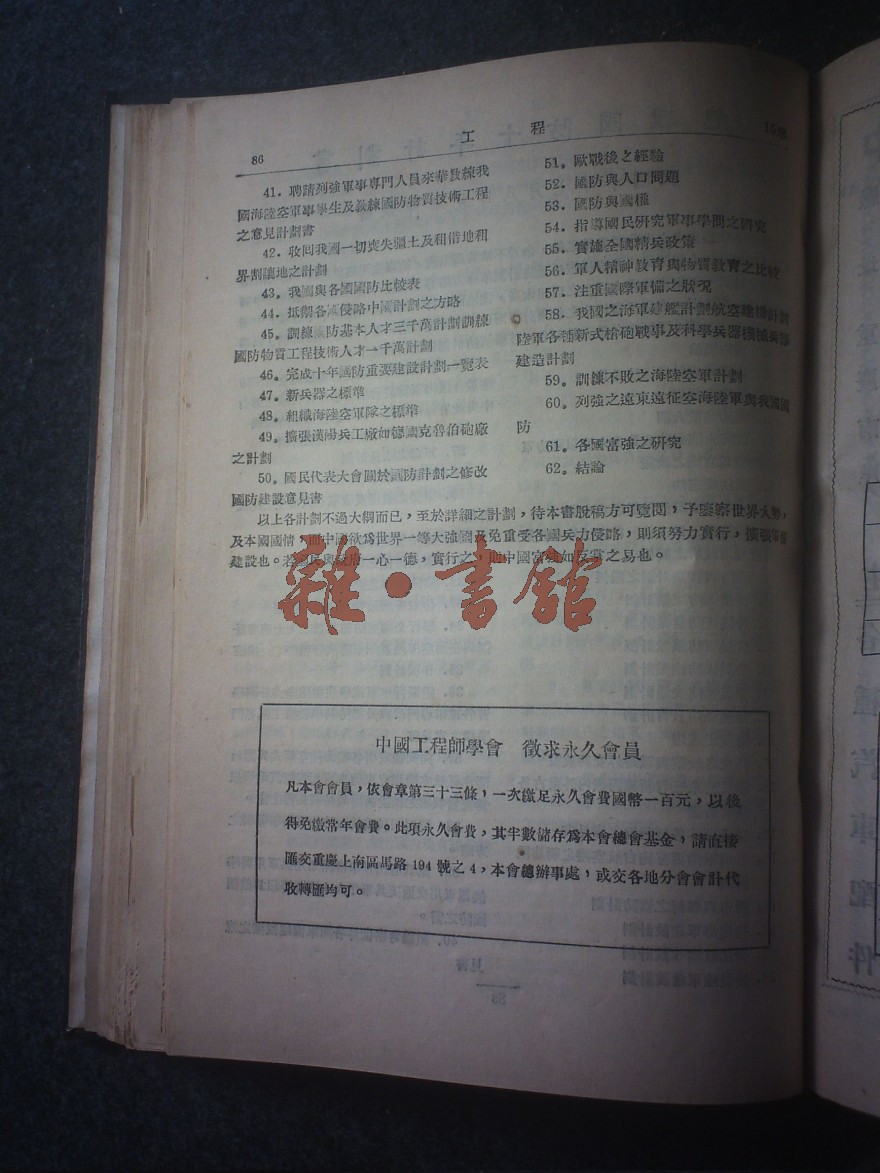 86
工　程
41. 聘請列強軍事専門人員來華教練我
國海陸空軍事學生及教練國防物質技術工程
之意見計劃書
42. 收囘我國一切喪失疆土及租借地租
界割讓地之計劃
43. 我國與各國國防比較表
44. 抵禦各國侵略中國計劃之方略
45. 訓練 防基本人才三千萬計劃訓練
國防物質工程技術人才一千萬計劃
46. 完成十年國防重要建設計劃一覽表
47. 新兵器之標準
48. 組織海陸空軍隊之標準
49. 擴張漢陽兵工廠如德國克魯伯砲廠
之計劃
50. 國民代表大會關於國防計劃之修改
國防建設意見書
51. 歐戰後之經驗
52. 國防與人口問題
53. 國防與國權
54. 指導國民硏究軍事學問之研究
55. 實施全國精兵政策
56. 軍人精神教育與物質教育之比較
57. 注重國際軍備之狀況
58. 我國之海軍建艦計劃航空建機計劃
陸軍各種新式槍砲戰車及科學兵器機械兵器
建造計劃
59. 訓練不敗之海陸空軍計劃
60. 列強之遠東遠征空海陸軍與我國國
防
61. 各國富強之研究
62. 結論
以上各計劃不過大綱而已，至於詳細之計劃，待本書脫稿方可覽閱，予 察世界大勢，
及本國國情， 中國欲爲世界一等大強國及免重受各國兵力侵略，則須努力實行，擴張軍備
建設也。若國民與政府一心一德，實行之， 中國富強如反掌之易也。
雜·書館
中國工程師學會　徵求永久會員
凡本會會員，依會章第三十三條，一次繳足永久會費國幣一百元，以後
得免繳常年會費。此項永久會費，其半數儲存爲本會總會基金，請直接
匯交重慶上南區馬路 194 號之 4，本會總辦事處，或交各地分會會計代
收轉匯均可。
汽車配件